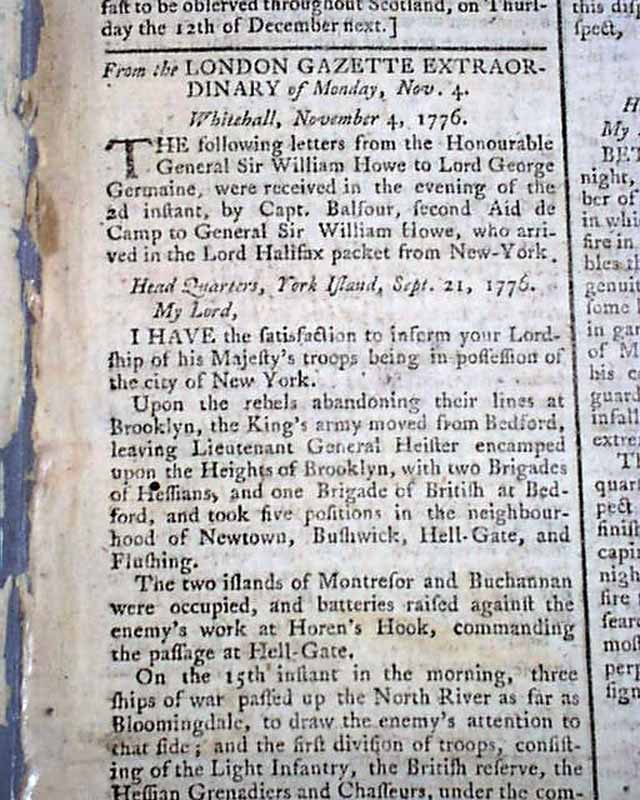 fast to be observed throughout Scotland, on Thurs-
day the 12th of December next.]
From the LONDON GAZETTE EXTRAOR-
DINARY of Monday, Nov. 4.
Whitehall, November 4, 1776.
THE following letters from the Honourable
General Sir William Howe to Lord George
Germaine, were received in the evening of the
2d instant, by Capt. Balfour, second Aid de
Camp to General Sir William Howe, who arri-
ved in the Lord Halifax packet from New-York.
Head Quarters, York Island, Sept. 21, 1776.
My Lord,
I HAVE the satisfaction to inform your Lord-
ship of his Majesty's troops being in possession of
the city of New York.
Upon the rebels abandoning their lines at
Brooklyn, the King's army moved from Bedford,
leaving Lieutenant General Heister encamped
upon the Heights of Brooklyn, with two Brigades
of Hessians, and one Brigade of British at Bed-
ford, and took five positions in the neighbour-
hood of Newtown, Bushwick, Hell-Gate, and
Flushing.
The two islands of Montresor and Buchannan
were occupied, and batteries raised against the
enemy's work at Horen's Hook, commanding
the passage at Hell-Gate.
On the 15th instant in the morning, three
ships of war passed up the North River as far as
Bloomingdale, to draw the enemy's attention to
that side; and the first division of troops, consist-
ing of the Light Infantry, the British reserve, the
Hessian Grenadiers and Chasseurs, under the com-
this
spect,
H
My
BET
night,
ber of
in whi
fire in
bles th
genui
some
in gar
of M
his c
guard
infall
extre
Th
quart
pect
finish
capi
nigh
fire
sear
most
perp
sign